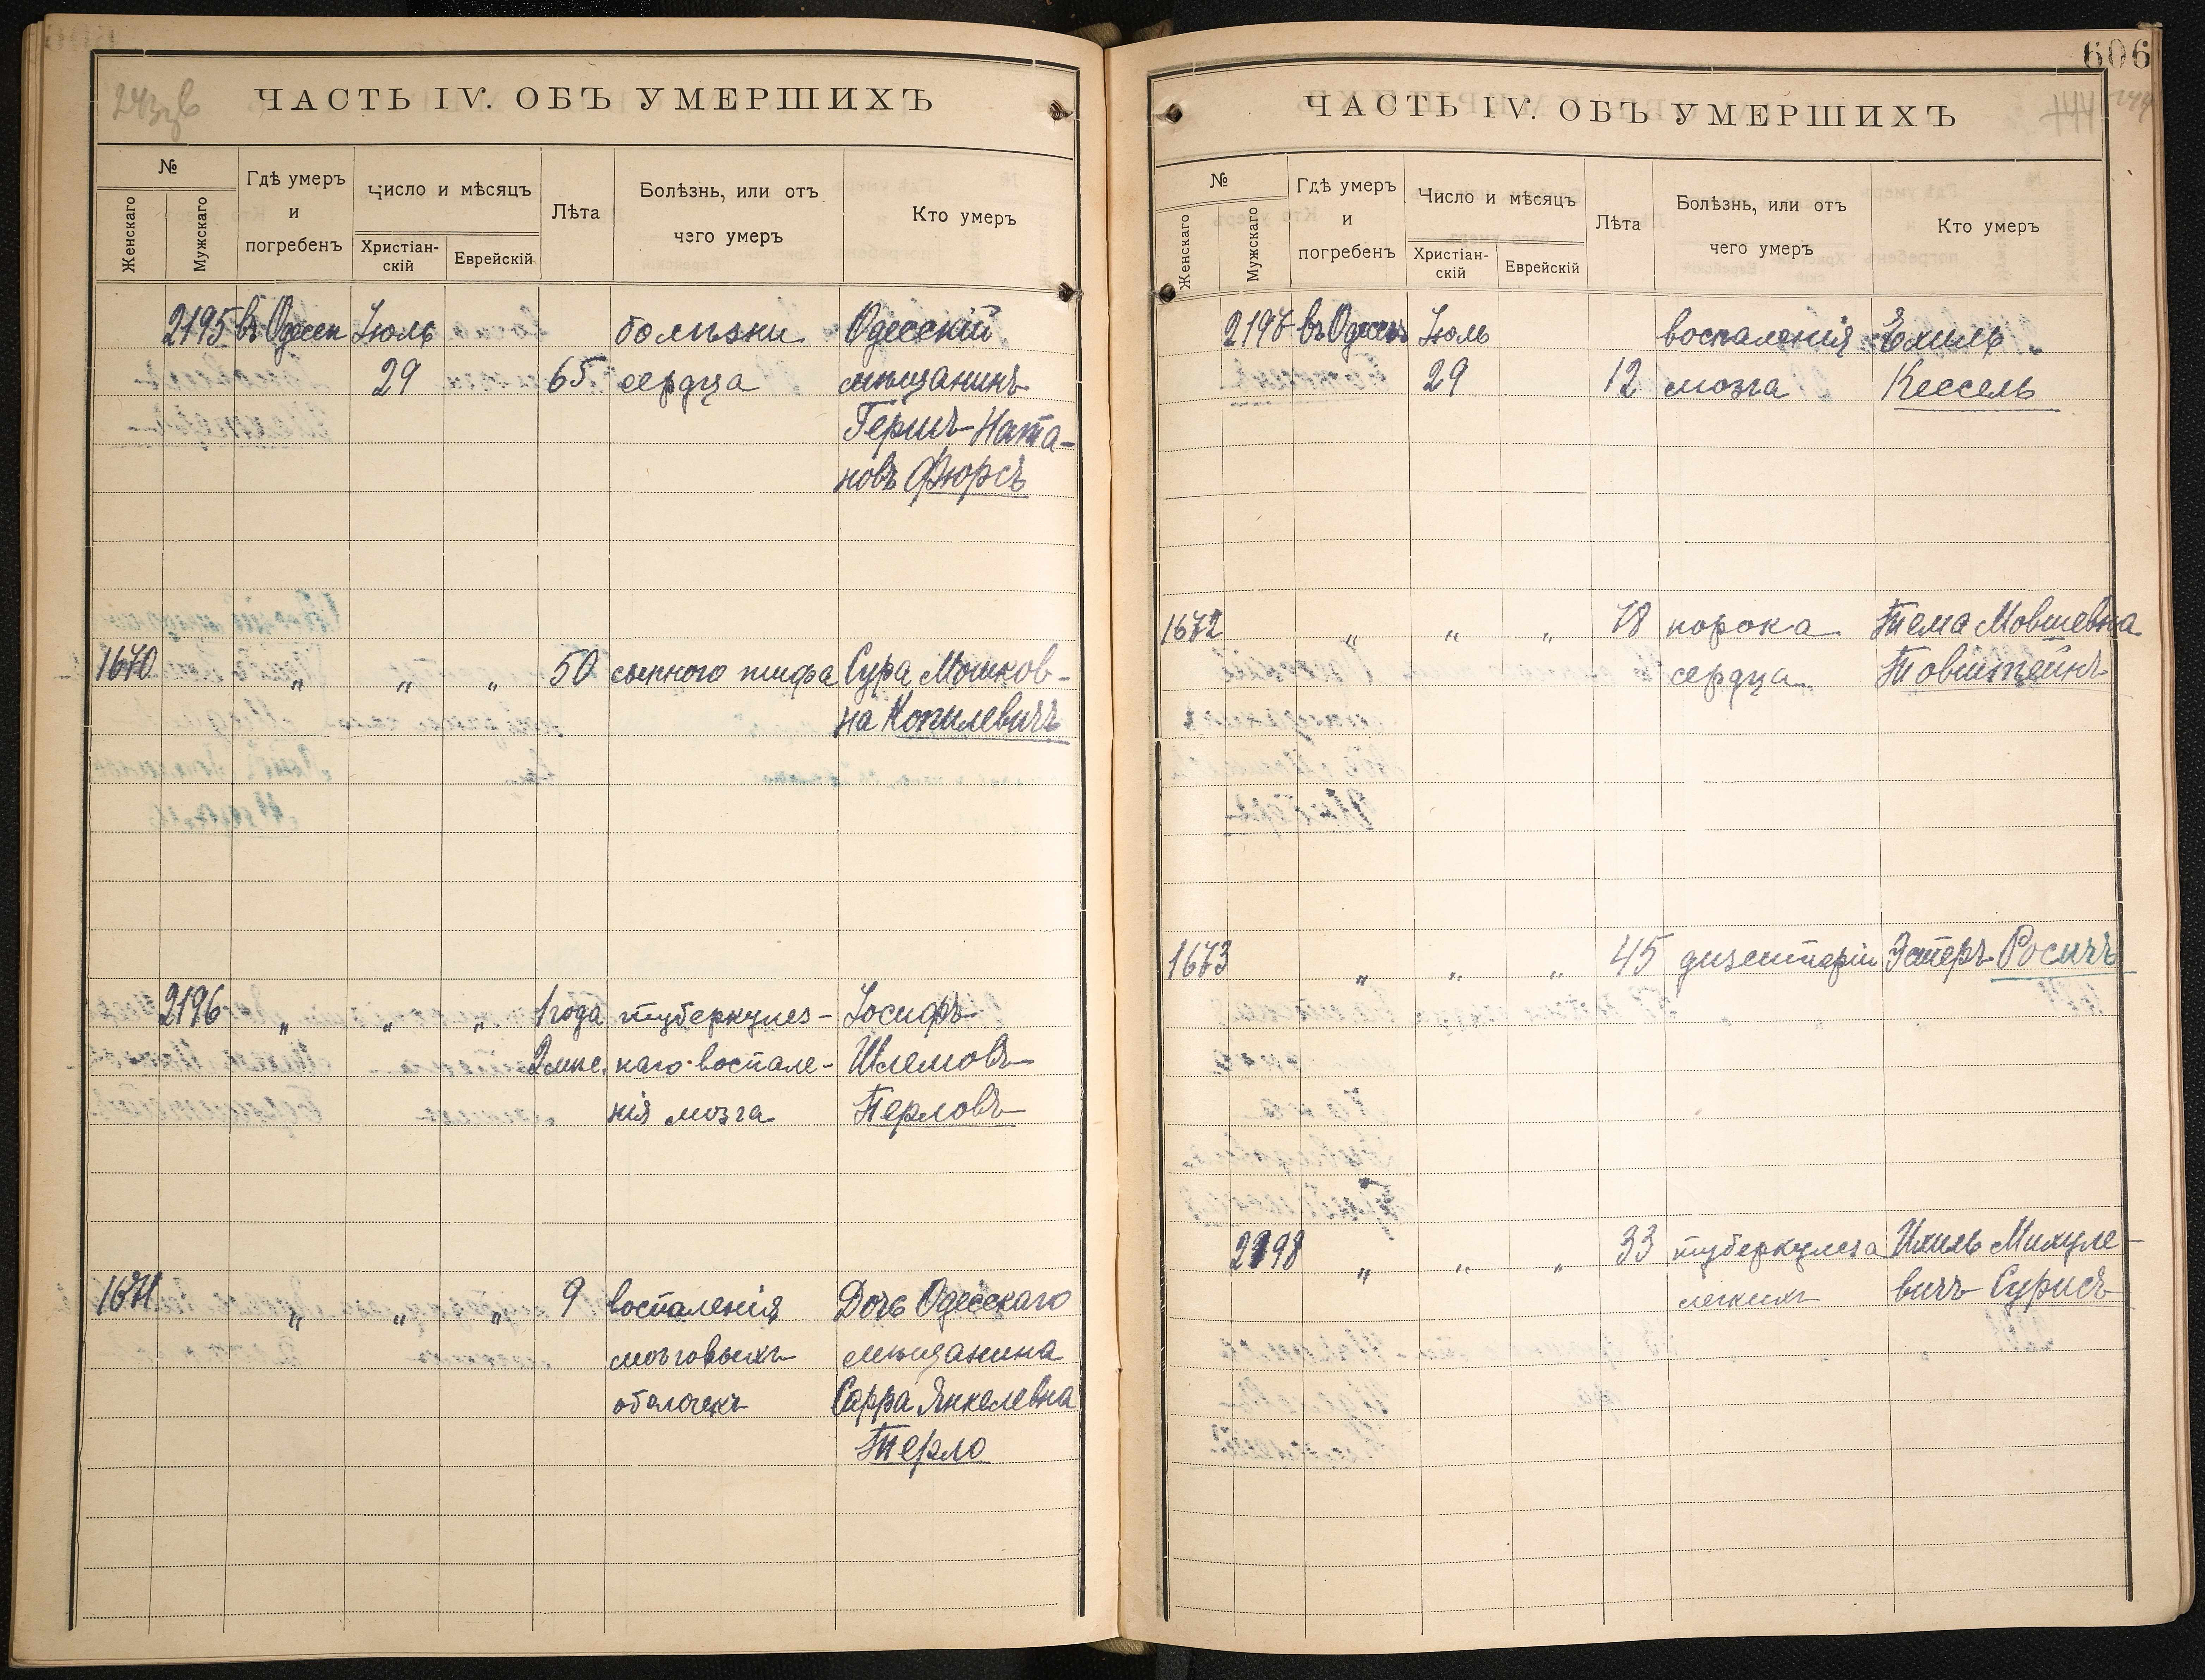 ЧАСТЬ IV. ОБЪ УМЕРШИХЪ
№
Женскаго
Мужскаго
Гдѣ умеръ
и
погребенъ
Число и мѣсяцъ
Христіан-
скій
Еврейскій
Лѣта
Болѣзнь, или отъ
чего умеръ
Кто умеръ
2195 въ Одессѣ Іюль болѣзни Одесскій
29 65 сердца мѣщанинъ
Гершъ Ната-
новъ Фюрсъ
1670 " " " 50 сыпного тифа Сура Мошков-
на Копилевичъ
2196 " " " 1 года туберкулез- Іосифъ
2 мѣс. наго воспале- Шлемовъ
нія мозга Перловъ
1671 " " " 9 воспаленія Дочь Одесскаго
мозговыхъ мѣщанина
оболочекъ Сарра Янкелевна
Терло
606
ЧАСТЬ IV. ОБЪ УМЕРШИХЪ
444
№
Женскаго
Мужскаго
Гдѣ умеръ
и
погребенъ
Число и мѣсяцъ
Христіан-
скій
Еврейскій
Лѣта
Болѣзнь, или отъ
чего умеръ
Кто умеръ
2197 въ Одессѣ Іюль воспаленія Ехиль
29 12 мозга Кессель
1672 " " " 78 порока Тема Мовшевна
сердца Товштейнъ
1673 " " " 45 дизентеріи Эстеръ Росичъ
2198 " " " 33 туберкулеза Ихиль Михуле-
легкихъ вичъ Сурисъ